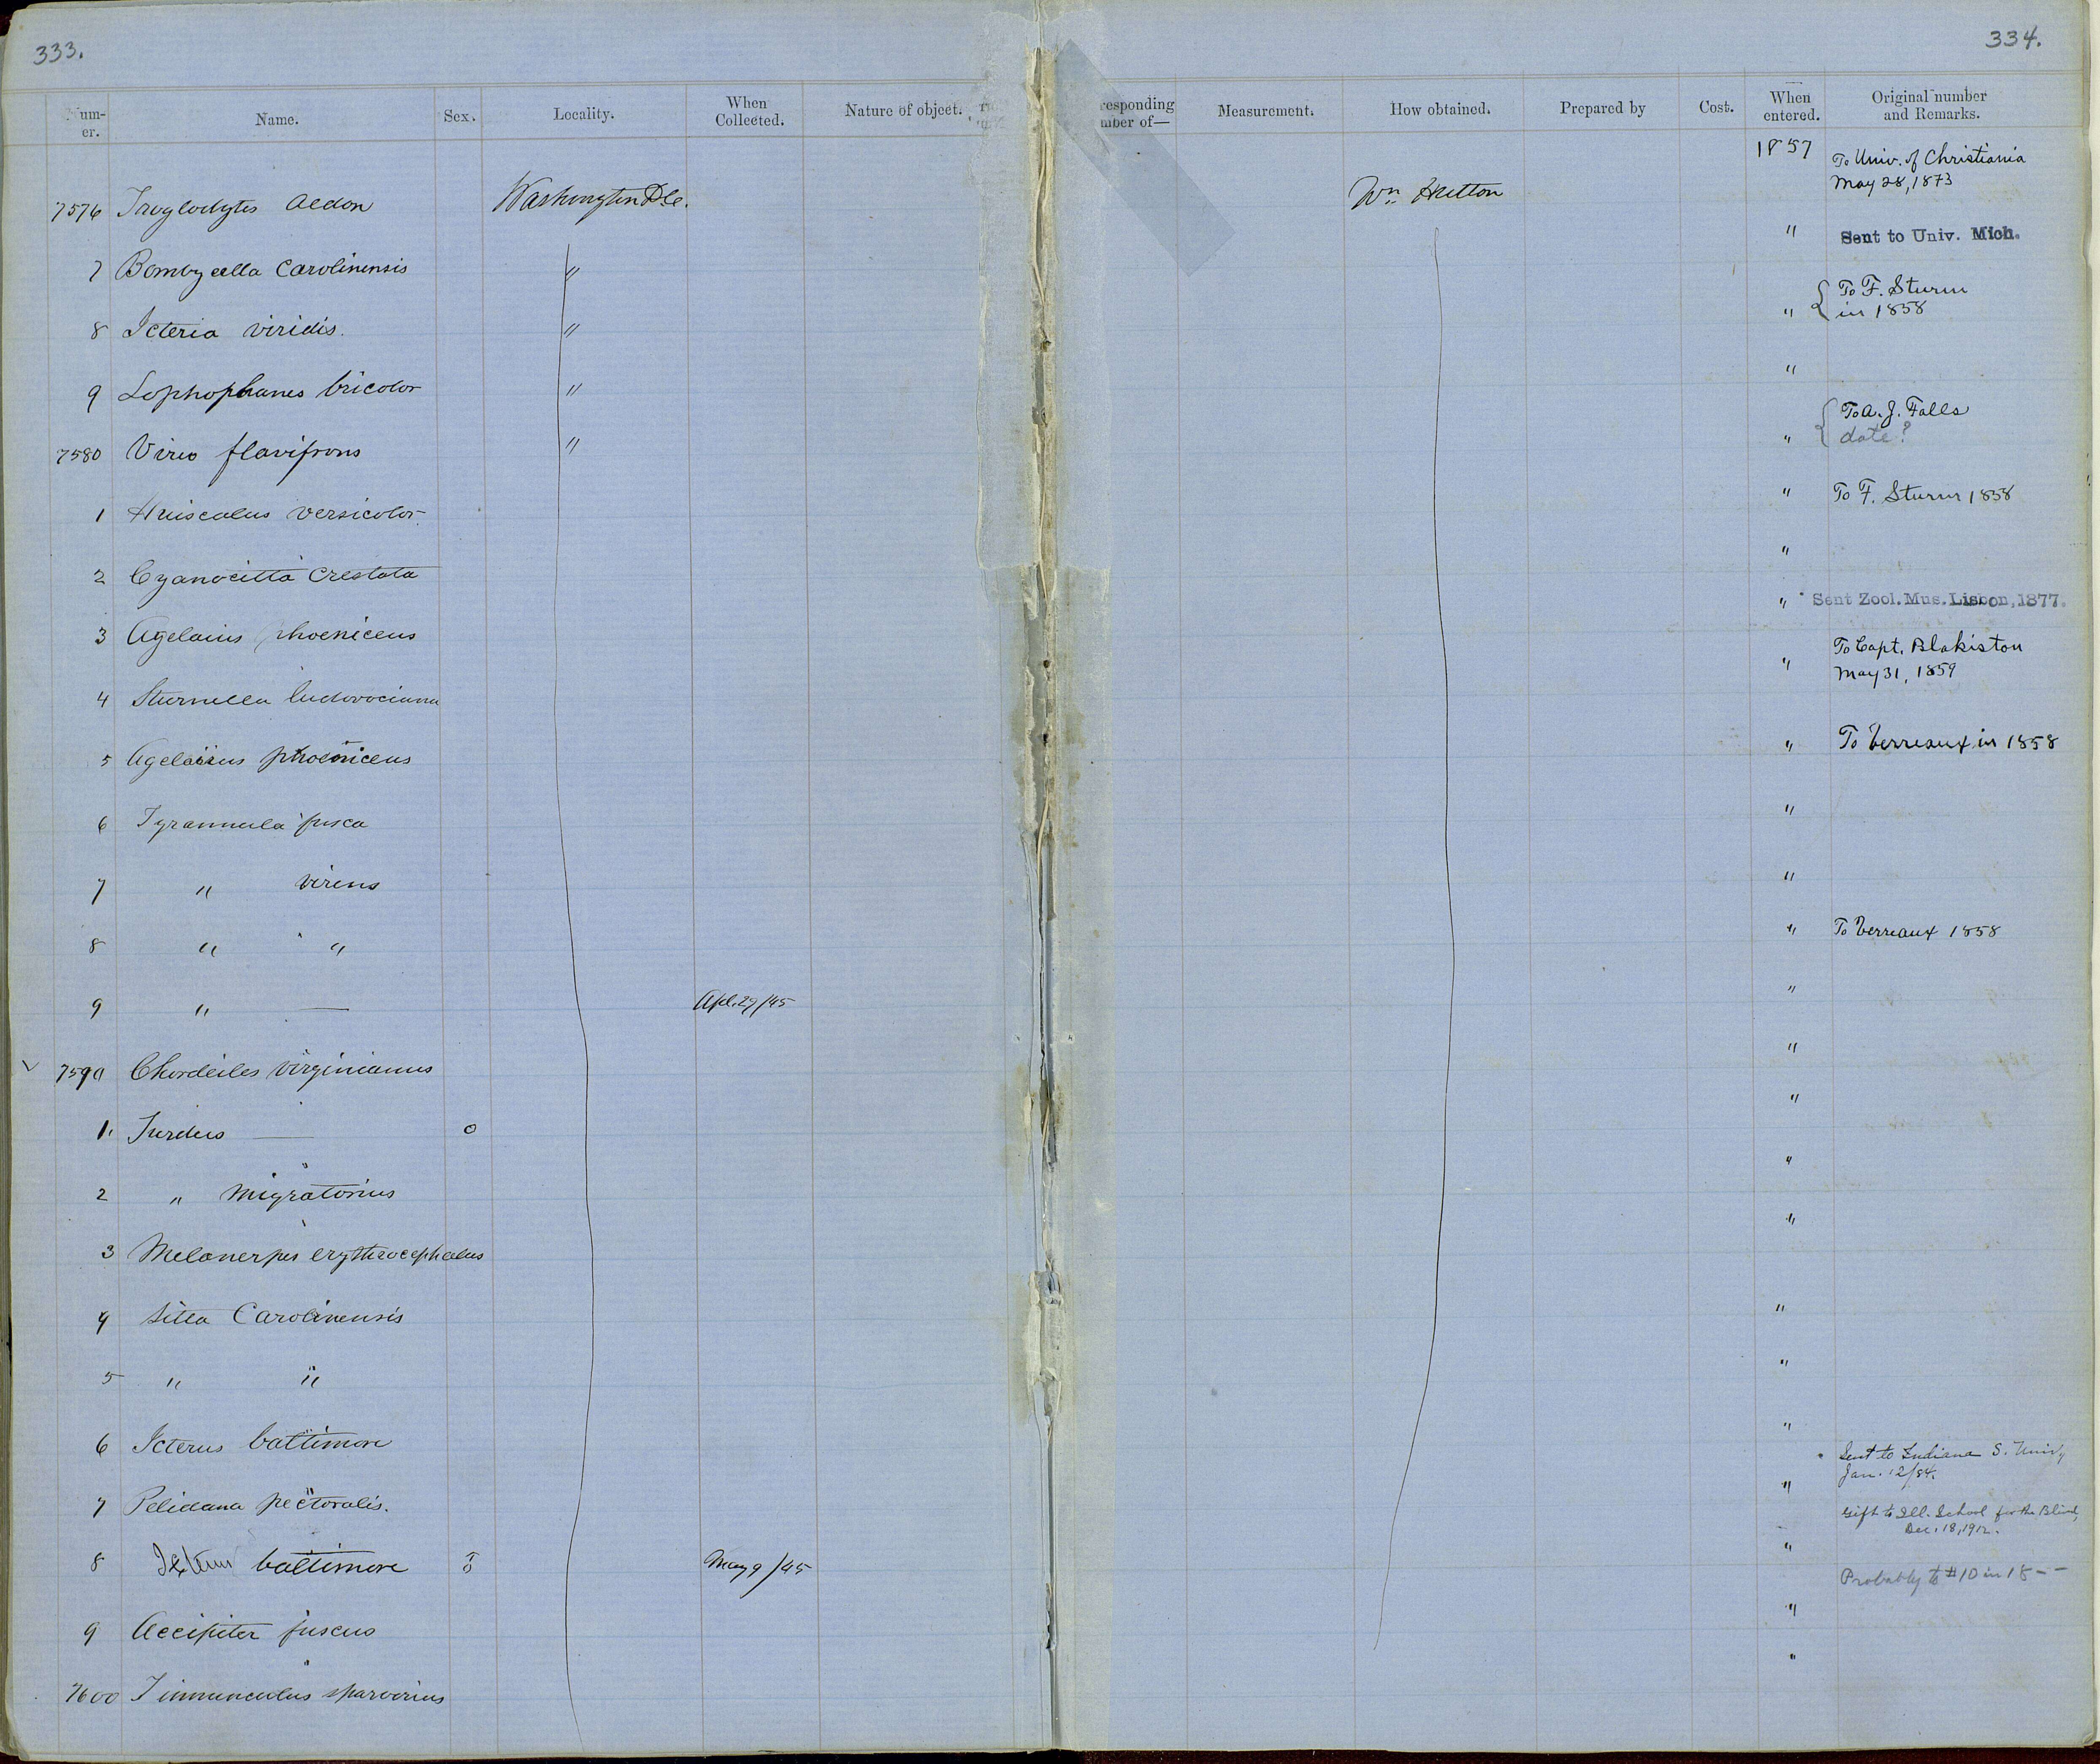 333.
334.
Num-
er.
Name.
Sex.
Locality.
When
Collected.
Nature of object.
responding
mber of—
Measurement.
How obtained.
Prepared by
Cost.
When
entered.
Original number
and Remarks.
7576 Troglodytes Aedon Washington D.C. Wm. Hutton 1857 To Univ. of Christiania
May 28, 1873
7 Bombycilla Carolinensis " " Sent to Univ. Mich.
8 Icteria viridis. " " { To F. Sturm
in 1858
9 Lophophanes bicolor " "
7580 Vireo flavifrons " " { To A. J. Falls
date?
1 Quiscalus versicolor. " To F. Sturm 1858
2 Cyanocitta Crestata "
3 Agelaius phoeniceus " Sent Zool. Mus. Lisbon, 1877.
4 Sturnella ludovociana " To Capt. Blakiston
May 31, 1859
5 Agelaius phoeniceus " To Verreaux in 1858
6 Tyrannula fusca "
7 " virens "
8 " " " To Verreaux 1858
9 " — Apl. 29/45 "
7590 Chordeiles virginianus "
1 Turdus — o "
2 " Migratorius "
3 Melanerpes erythrocephalus "
4 Sitta Carolinensis "
5 " " "
6 Icterus baltimore "
7 Pelidana pectoralis. " Sent to Indiana S. Univ.
Jan. 12/84.
8 Icterus baltimore May 9/45 " Gift to Ill. School for the Blind,
Dec. 18, 1912.
9 Accipiter fuscus " Probably to #10 in 18--
7600 Tinnunculus sparverius "